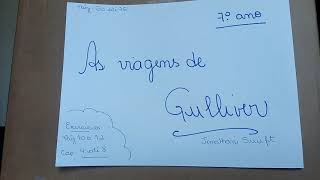 7º ano
As viagens de
Gulliver
Jonathan Swift
Exercícios
Pág 10 a 12
Cap. 4 até 8